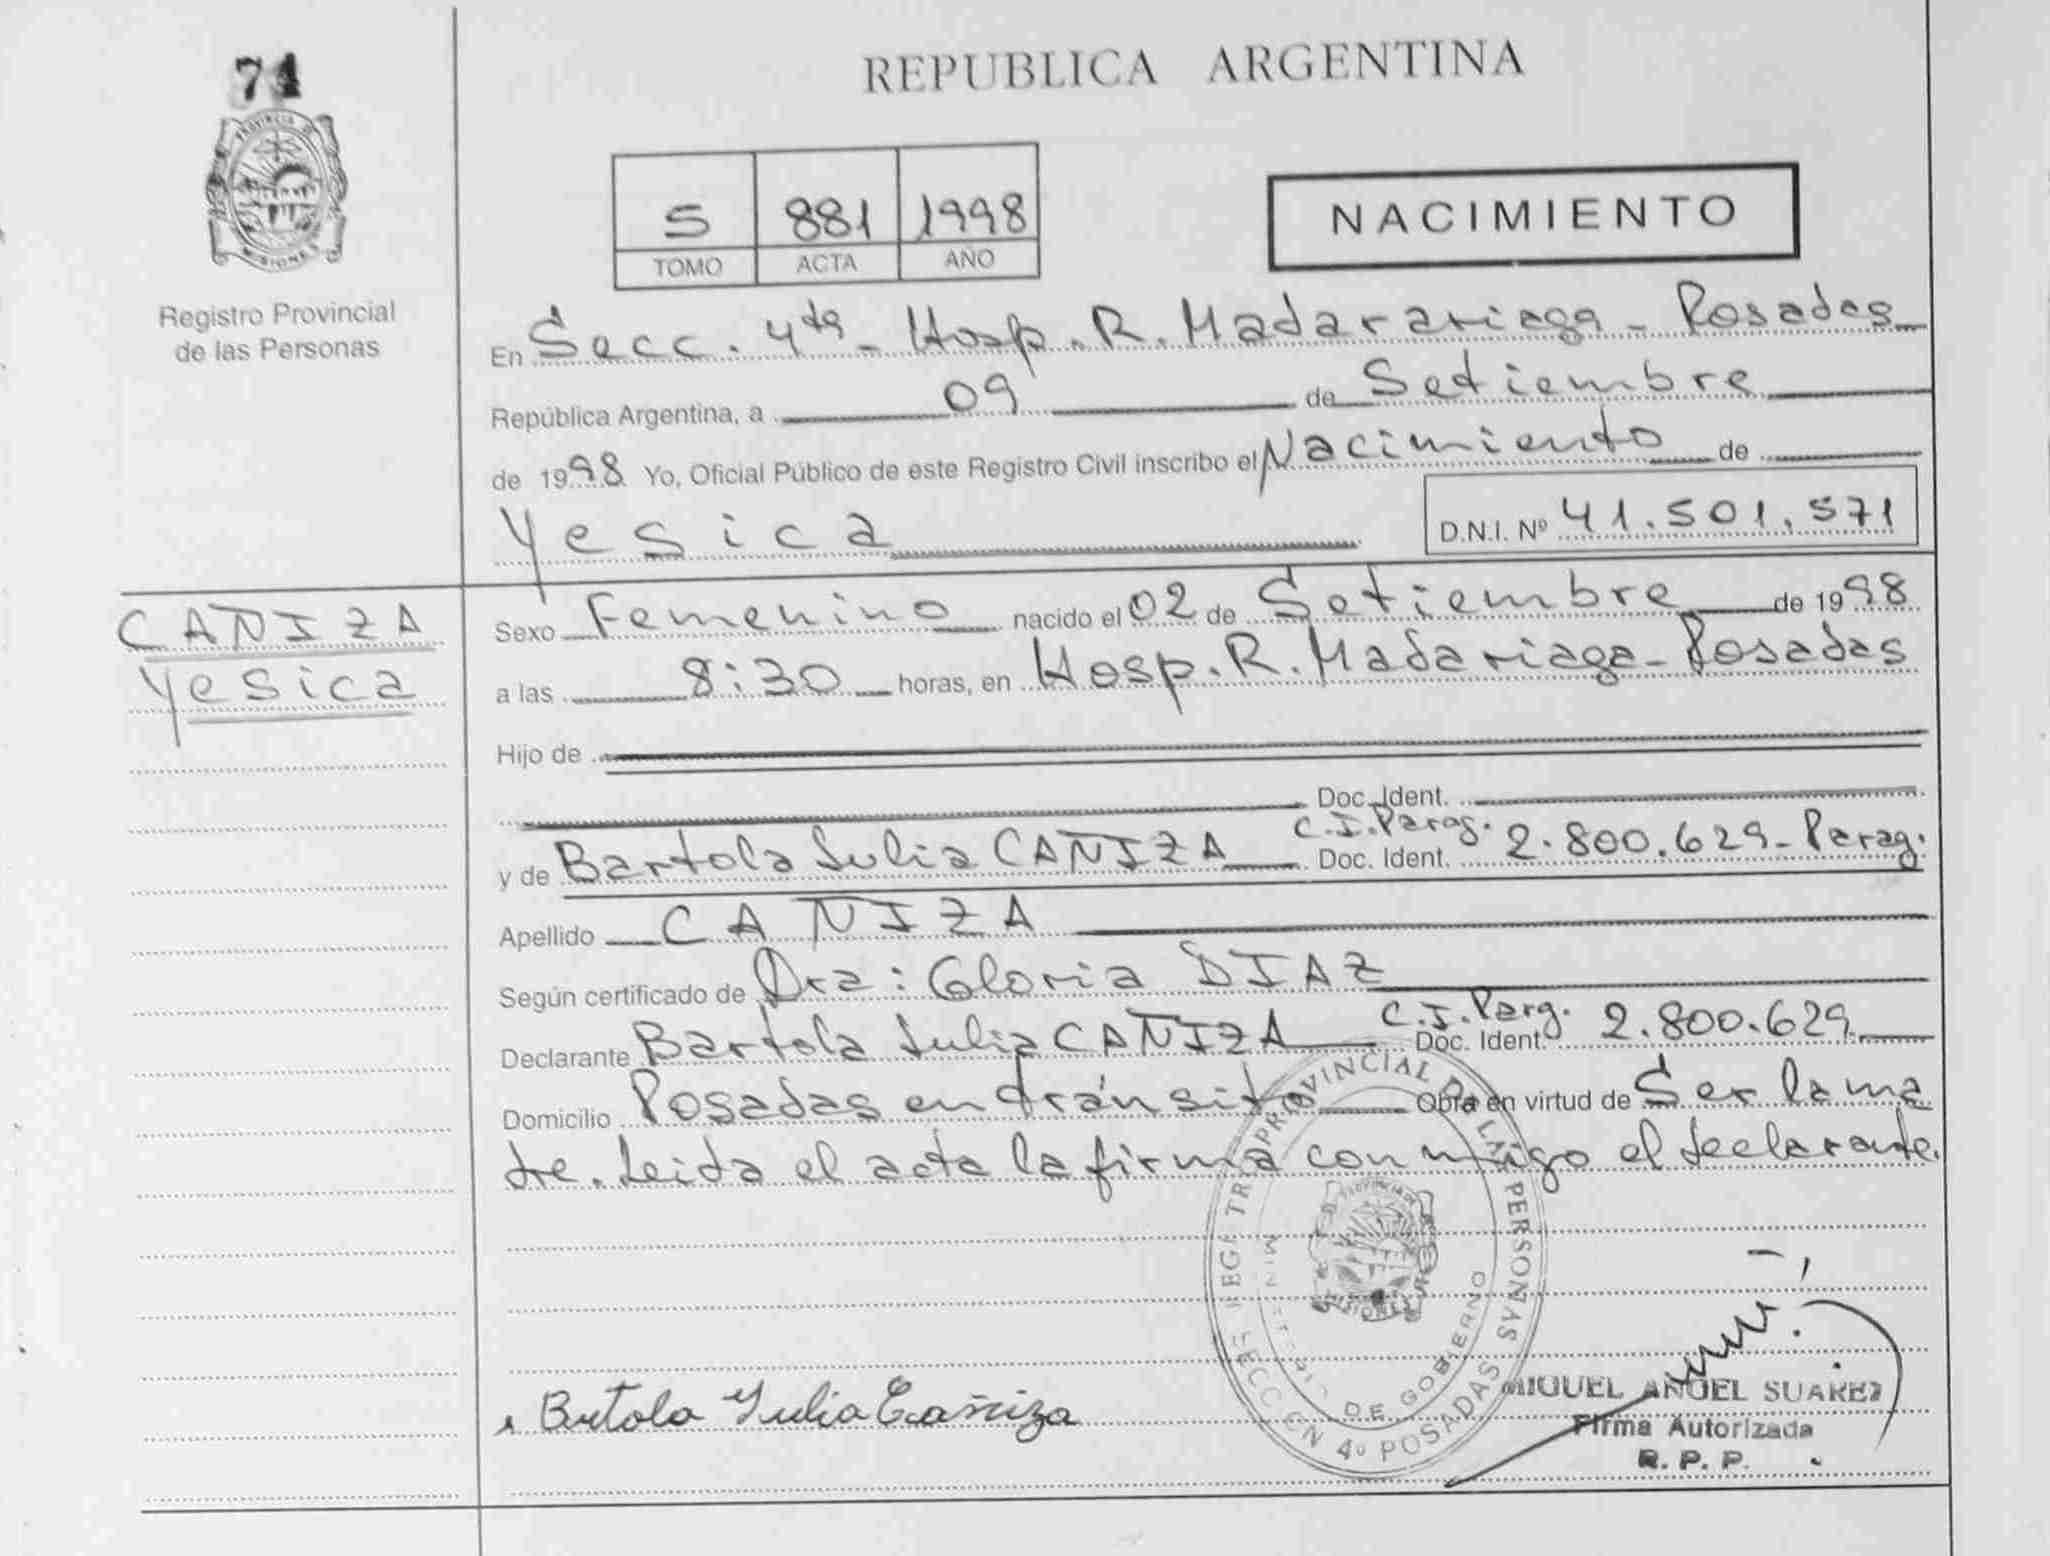 74
PROVINCIA DE
MISIONES
Registro Provincial
de las Personas
REPUBLICA ARGENTINA
5 881 1998
TOMO ACTA AÑO
NACIMIENTO
En Secc. 4ta - Hosp. R. Madarariaga - Posadas
República Argentina, a 09 de Setiembre
de 1998 Yo, Oficial Público de este Registro Civil inscribo el Nacimiento de
Yesica D.N.I. Nº 41.501.571
CAÑIZA
Yesica
Sexo Femenino nacido el 02 de Setiembre de 1998
a las 8:30 horas, en Hosp. R. Madariaga - Posadas
Hijo de
Doc. Ident.
y de Bartola Julia CAÑIZA C.I. Parag. Doc. Ident. 2.800.629 - Parag.
Apellido CAÑIZA
Según certificado de Dra: Gloria DIAZ
Declarante Bartola Julia CAÑIZA C.I. Parg. Doc. Ident. 2.800.629
Domicilio Posadas en tránsito Obra en virtud de Ser la ma
dre. Leida el acta la firma con migo el declarante.
PROVINCIAL DE LAS PERSONAS
MINISTERIO DE GOBIERNO
SECC EN 4º POSADAS
MISIONES
Bartola Julia Cañiza
MIGUEL ANGEL SUAREZ
Firma Autorizada
R. P. P.